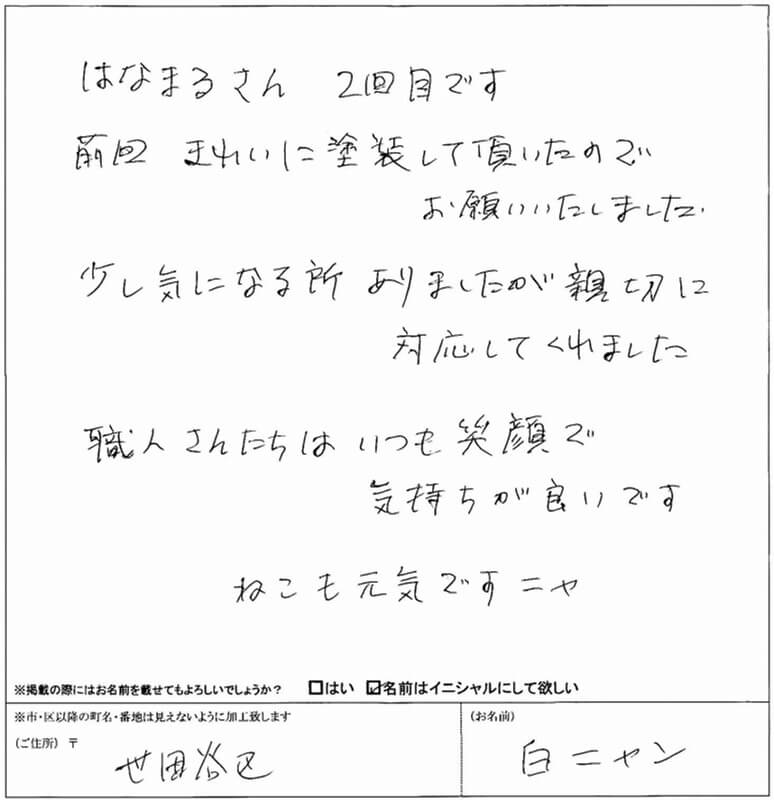 はなまるさん 2回目です
前回 きれいに塗装して頂いたので
お願いいたしました.
少し気になる所 ありましたが親切に
対応してくれました
職人さんたちは いつも笑顔で
気持ちが良いです
ねこも元気ですニャ
※掲載の際にはお名前を載せてもよろしいでしょうか? □はい ☑名前はイニシャルにして欲しい
※市・区以降の町名・番地は見えないように加工致します
(ご住所) 〒
世田谷区
(お名前)
白ニャン